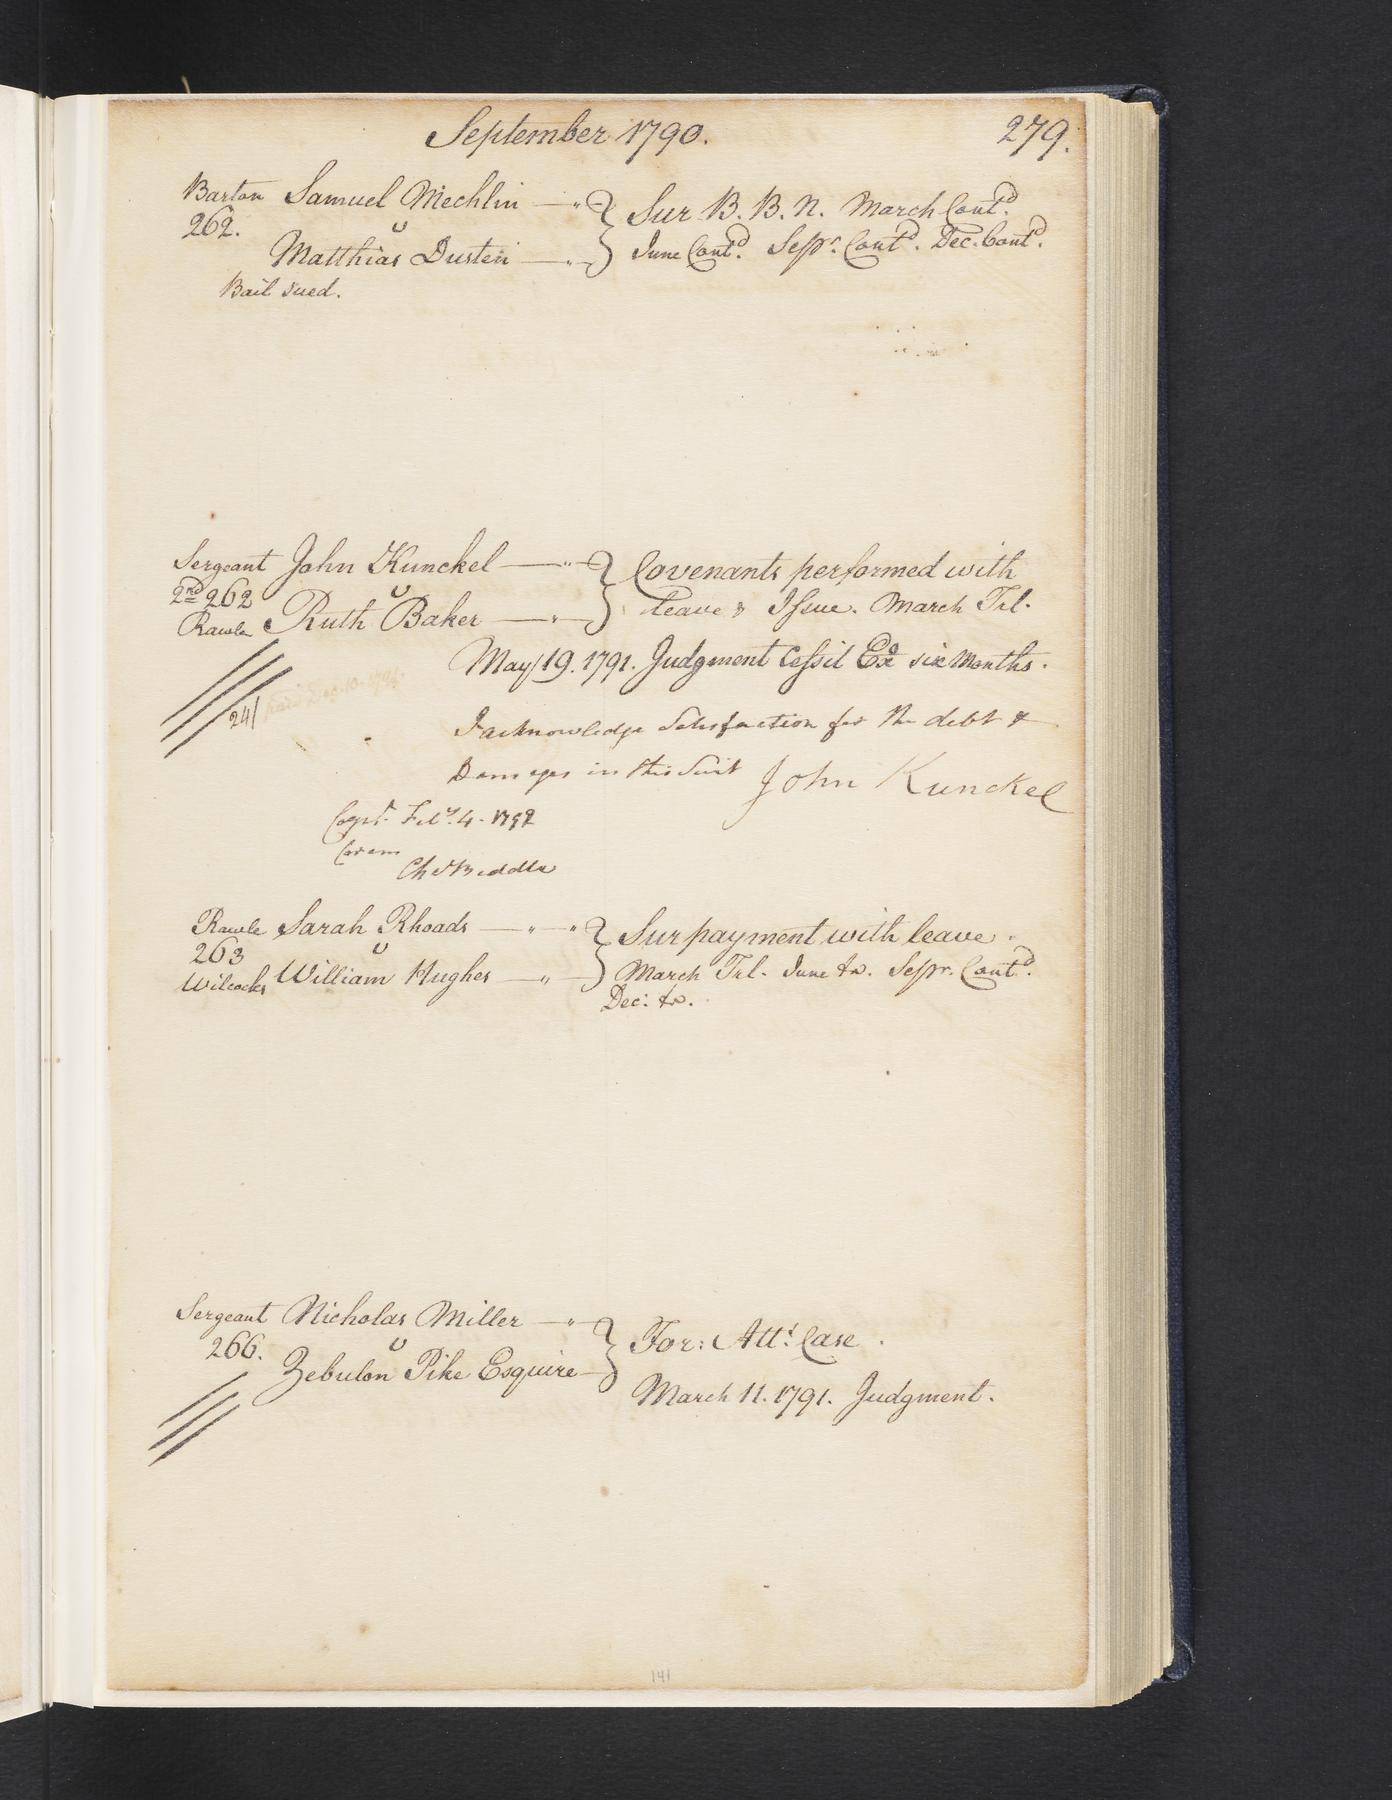 September 1790. 279.
Barton Samuel Mechlin Sur B. B. N. March Cont.d
262. v
Matthias Dustein June Cont.d Sepr. Cont.d Dec. Cont.d
Bail sued.
Sergeant John Kunckel Covenants performed with
2nd 262 v
Rawle Ruth Baker leave & Issue. March Trl.
May 19. 1791. Judgment Cessit Exo six Months.
24/ paid Dec. 10. 1794.
I acknowledge Satisfaction for the debt &
Damages in this Suit John Kunckel
Capt. Feb.y 4. 1792
Coram
Cha Biddle
Rawle Sarah Rhoads Sur payment with leave.
263 v
Wilcocks William Hughes March Trl. June do. Sepr. Cont.d
Dec: do.
Sergeant Nicholas Miller For: Att.t Case.
266. v
Zebulon Pike Esquire
March 11. 1791. Judgment.
141